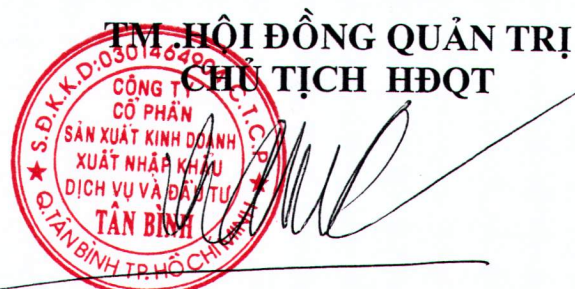 TM .HỘI ĐỒNG QUẢN TRỊ
CHỦ TỊCH HĐQT
CÔNG TY
CỔ PHẦN
SẢN XUẤT KINH DOANH
XUẤT NHẬP KHẨU
DỊCH VỤ VÀ ĐẦU TƯ
TÂN BÌNH
Q.TÂN BÌNH T.P. HỒ CHÍ MINH